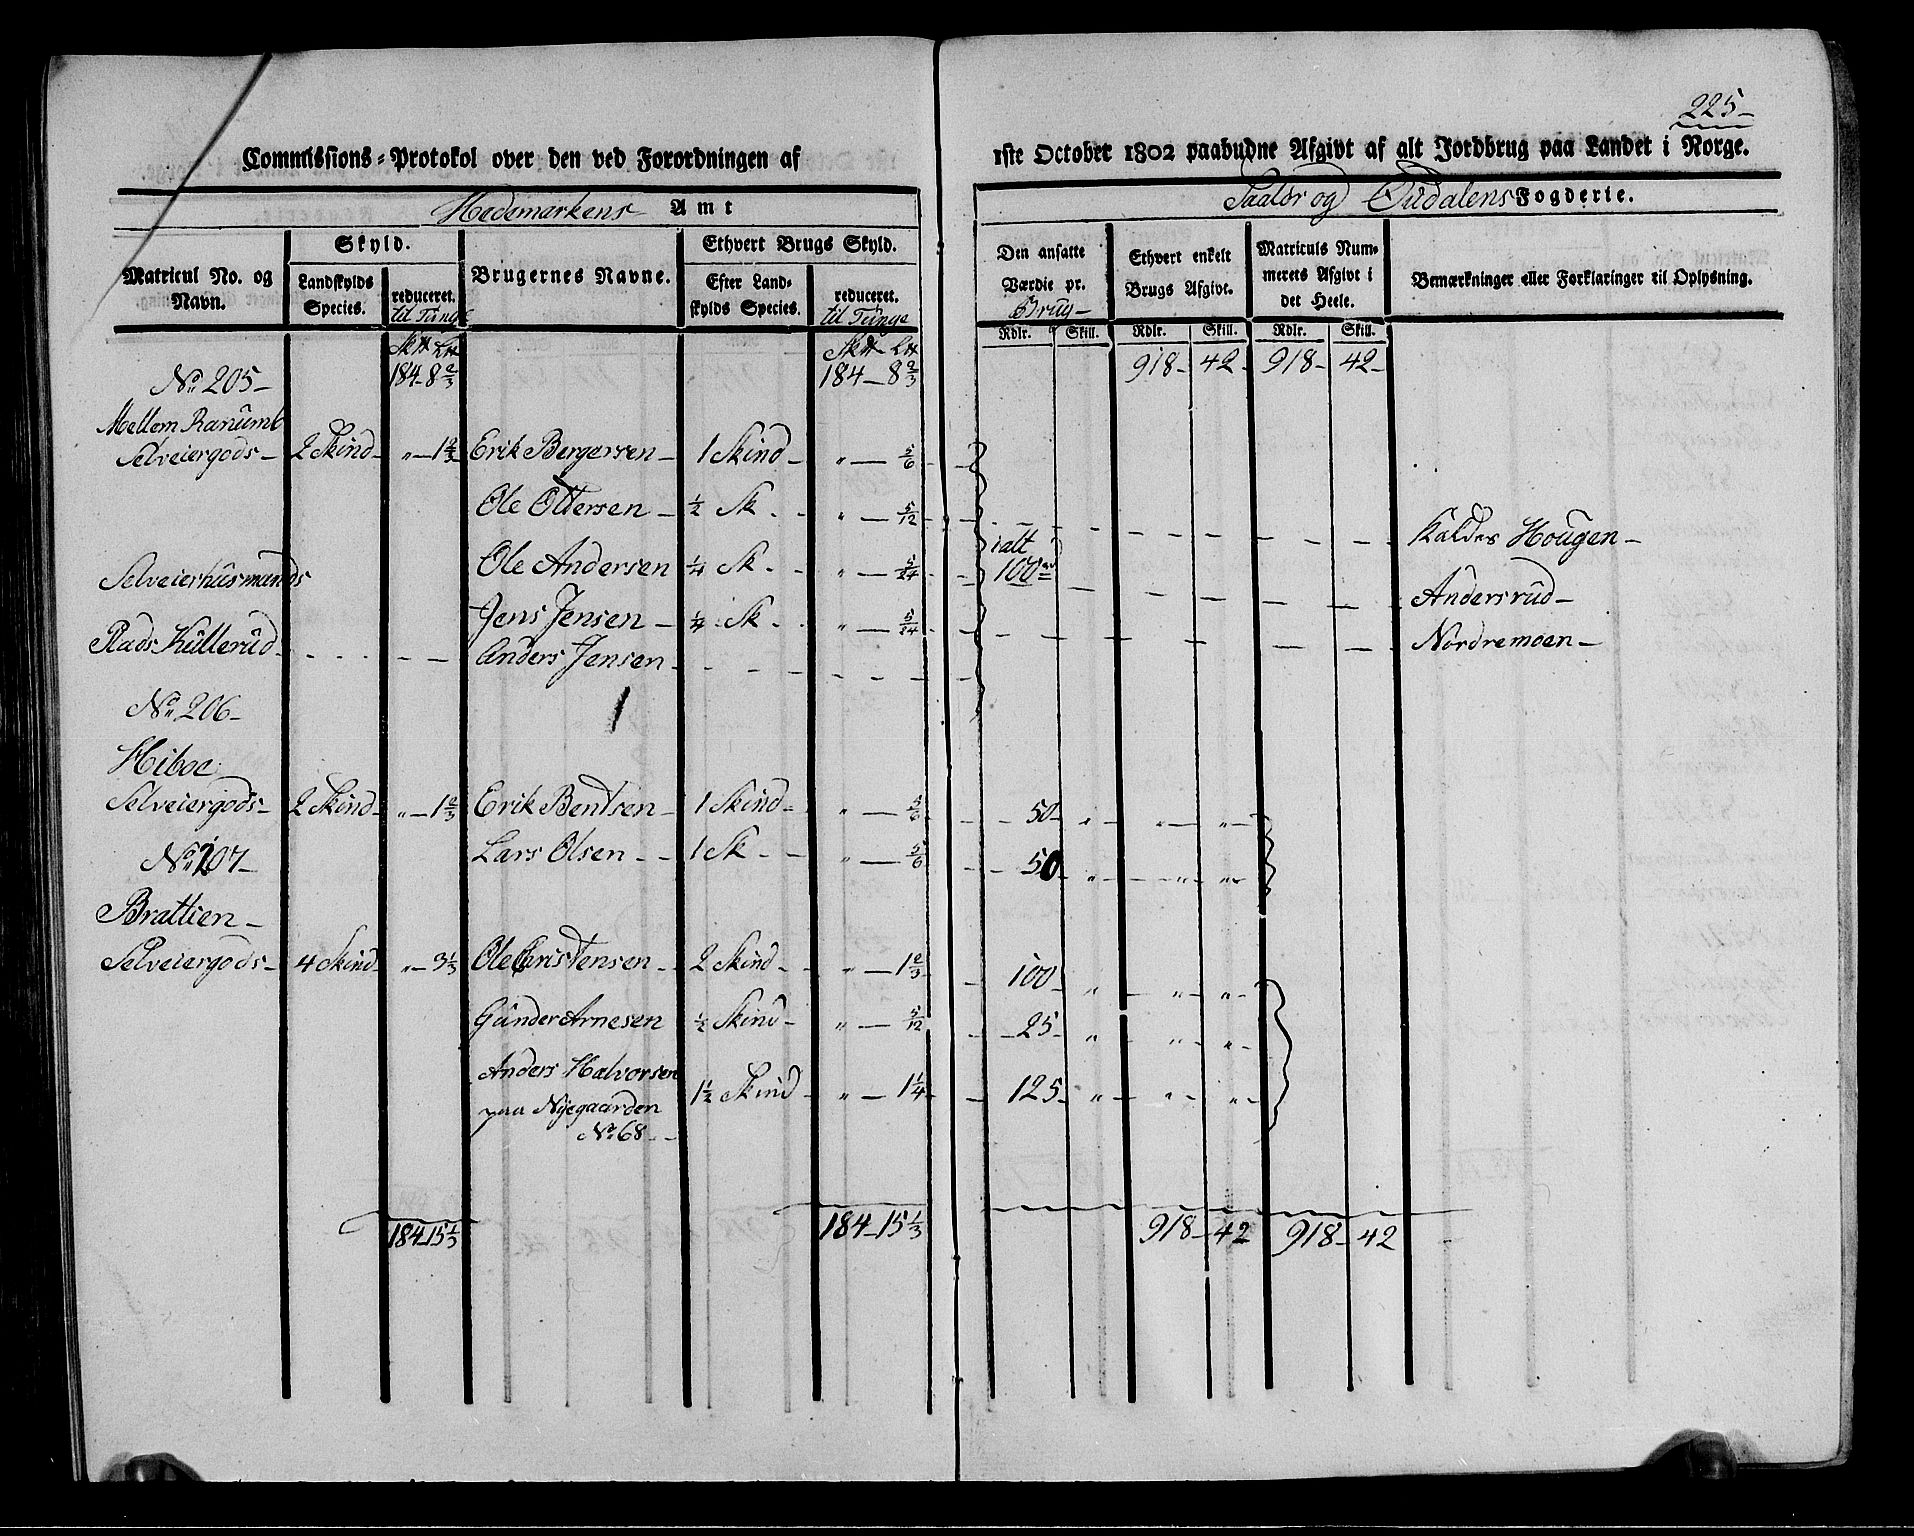 225-
Commissions-Protokol over den ved Forordningen af 1ste October 1802 paabudne Afgivt af alt Jordbrug paa Landet i Norge.
Hedemarkens Amt
Soløer og Oudalens Fogderie.
Matricul No. og Navn.
Skyld.
Landskylds Species.
reduceret.
til Tunge
Brugernes Navne.
Ethvert Brugs Skyld.
Efter Landskylds Species.
reduceret.
til Tunge
Den ansatte Værdie pr.
Brug-
Rdlr. Skill.
Ethvert enkelt Brugs Afgivt.
Rdlr. Skill.
Matriculs Nummerets Afgivt i det Heele.
Rdlr. Skill.
Bemærkninger eller Forklaringer til Oplysning.
No 205- 184-8 2/3 184-8 2/3 918- 42- 918- 42-
Mellem Ranum
Selveiergods- 2 Skind- "-1 2/3 Erik Bergersen- 1 Skind- "- 5/6
Ole Ottersen- 1/2 Sk.- "- 5/12 Kaldes Hougen-
Selveierhusmands Ole Andersen 1/4 Sk.- "- 5/24 ialt 100 Andersrud-
Plads Kullerud- Jens Jensen- 1/4 Sk.- "- 5/24 Nordremoen-
Anders Jensen-
No 206-
Hiboe
Selveiergods- 2 Skind- "-1 2/3 Erik Bentsen- 1 Skind- "- 5/6 50- " " "
No 207- Lars Olsen- 1 Sk- "- 5/6 50- " " "
Brattien-
Selveiergods- 4 Skind- "-3 1/3 Ole Christensen- 2 Skind- "-1 2/3 100 " " "
Gunder Arnesen 1/2 Skind- "- 5/12 25- " " "
Anders Halvorsen
paa Nyegaarden 1 1/2 Skind- "-1 1/4 125- " " "
No 68-
184-15 1/3 184-15 1/3 918- 42 918- 42